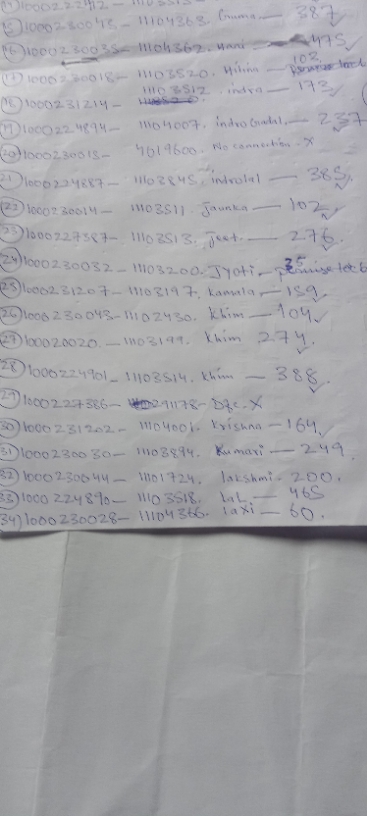 15) 1000230045 - 11104363. Guma - 387 ✓
16) 1000230035 - 11104362. - 475 ✓
17) 1000230018 - 11103520. - 103
18) 1000231214 - 11103512. indra - 173 ✓
19) 1000224894 - 11104007. indra - 237 ✓
20) 1000230013 - 4019600. No connection - X
21) 1000224887 - 11103845. indralal - 385 ✓
22) 1000230014 - 11103511. Jaunka - 102 ✓
23) 1000227387 - 11103513. Jeet. - 276 ✓
24) 1000230032 - 11103200. Jyoti - 25
25) 1000231207 - 11103197. Kamala - 159 ✓
26) 1000230043 - 11102430. Khim - 104 ✓
27) 100020020 - 11103199. Khim 274 ✓
28) 1000224901 - 11103514. Khim - 388 ✓
29) 1000227386 - 291178 - X
30) 1000231202 - 11104001. Krishna - 164 ✓
31) 1000230030 - 11103874. Kumari - 249.
32) 1000230044 - 11101724. lakshmi - 200.
33) 1000224890 - 11103518. LaL - 465
34) 1000230028 - 11104366. laxi - 60.